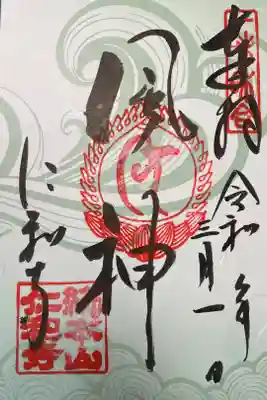 奉拝
令和年
三月一日
風神
仁和寺
総本山
仁和寺